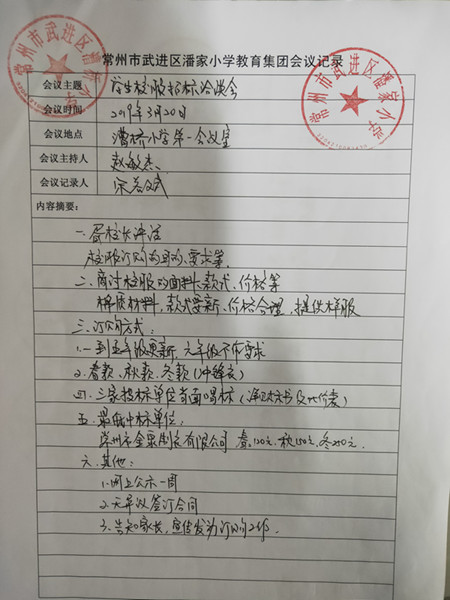 常州市武进区潘家小学教育集团会议记录
会议主题 学生校服招标洽谈会
会议时间 2019年3月20日
会议地点 漕桥小学第一会议室
会议主持人 赵敏杰
会议记录人
内容摘要:
校长讲话
校服订购的目的、要求等
二.商讨校服的面料、款式、价格等
材料,款式要新、价格合理,提供样服
三.订购方式:
1.一到五年级更新,六年级不作要求
2.春款、秋款、冬款(冲锋衣)
四.三家投标单位当面唱标
五.最低中标单位:
常州市金 制衣有限公司 春.120元.秋150元.冬250元.
六.其他:
1.网上公示一周
2.无异议签订合同
3.告知家长,宣传发动订购工作.
常州市武进区潘家小学
常州市武进区潘家小学